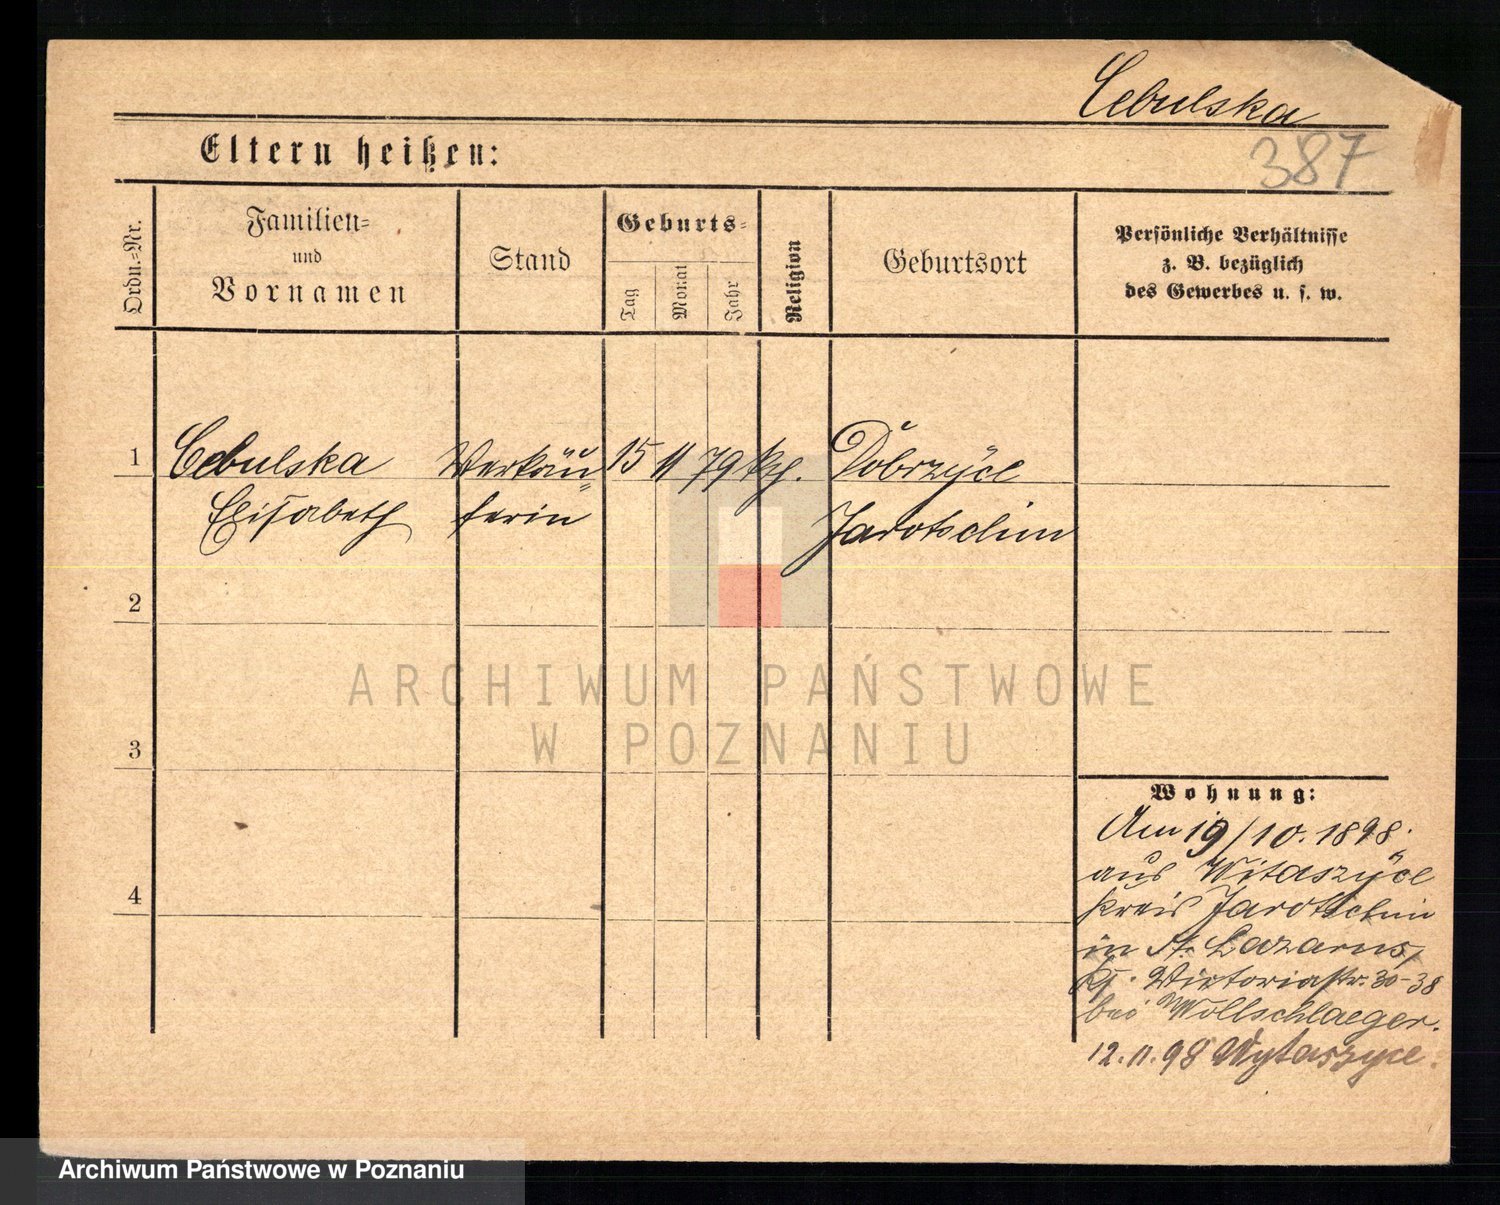 Cebulska
Eltern heißen:
387
Ordn.=Nr.
Familien=
und
Vornamen
Stand
Geburts=
Tag
Monat
Jahr
Religion
Geburtsort
Persönliche Verhältnisse
z. B. bezüglich
des Gewerbes u. s. w.
1
Cebulska
Elisabeth
Verkäu=
ferin
15
11
79
kth.
Dobrzyce
Jarotschin
2
ARCHIWUM PAŃSTWOWE
W POZNANIU
3
4
Wohnung:
Am 19/10. 1898.
aus Witaszyce
Kreis Jarotschin
in St. Lazarus,
Victoriastr. 30-38
bei Wollschlaeger.
12. 11. 98 Wytaszyce.
Archiwum Państwowe w Poznaniu